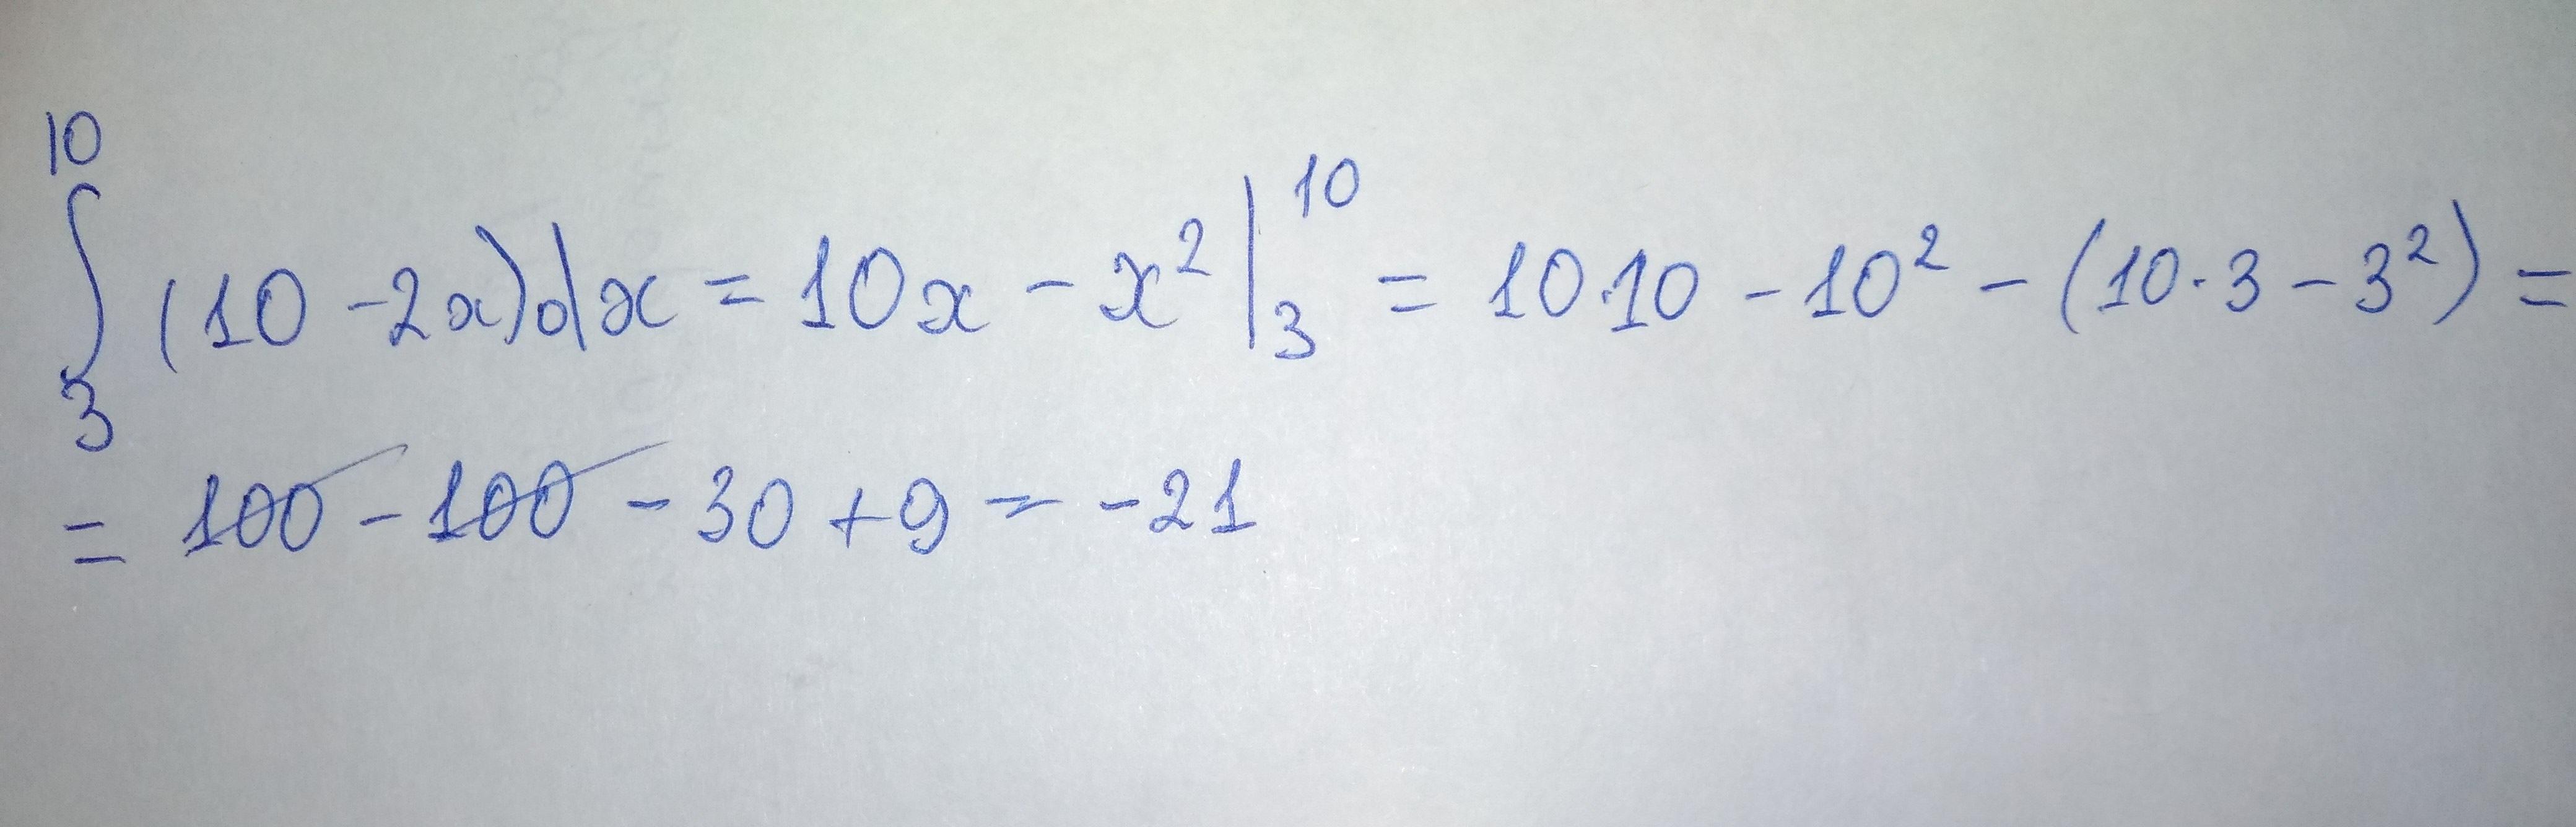 ∫₃¹⁰ (10 - 2x)dx = 10x - x² |₃¹⁰ = 10·10 - 10² - (10·3 - 3²) =
= 100 - 100 - 30 + 9 = -21